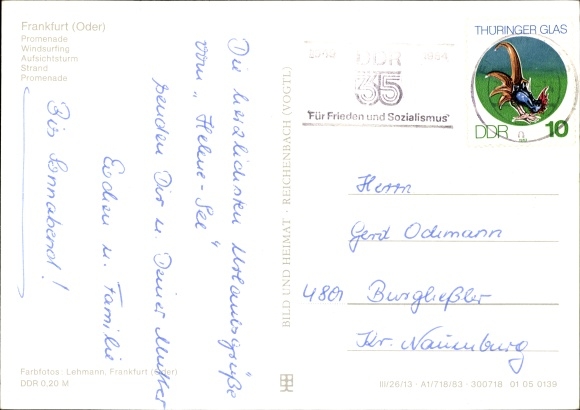 Frankfurt (Oder)
Promenade
Windsurfing
Aufsichtsturm
Strand
Promenade
Die herzlichsten Urlaubsgrüße
vom "Helene-See"
senden Dir u. Deiner Mutter
u. Familie
Bis Sonnabend!
Farbfotos: Lehmann, Frankfurt (Oder)
DDR 0,20 M
BILD UND HEIMAT · REICHENBACH (VOGTL)
1949 1984
DDR
35
"Für Frieden und Sozialismus"
THÜRINGER GLAS
DDR 10
Herrn
Gerd Ochmann
4801 Burgheßler
Kr. Naumburg
III/26/13 · A1/718/83 · 300718 01 05 0139